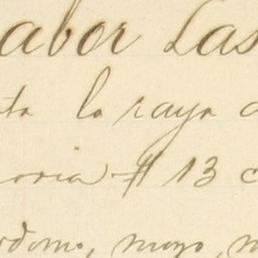 abor Las
ta la raya
oria # 13 c
rdomo, mozo, m